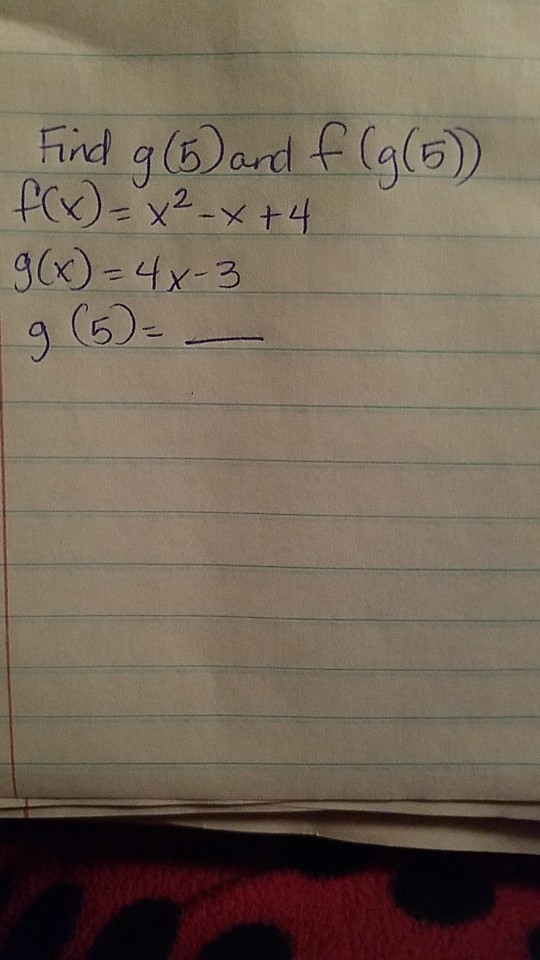 Find g(5) and f(g(5))
f(x) = x² - x + 4
g(x) = 4x - 3
g(5) = __